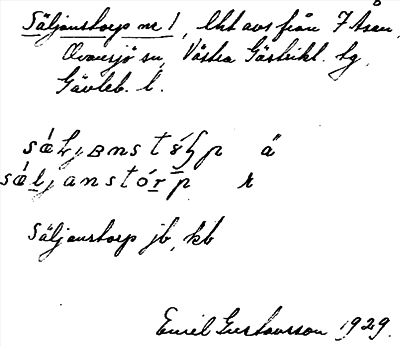 Säljanstorp nr 1, lht avs från 7 Åsen,
Ovansjö sn, Västra Gästrikl. tg,
Gävleb. l.
ä
säljanstórp k
Säljanstorp jb, kb
Emil Gustavsson 1929.